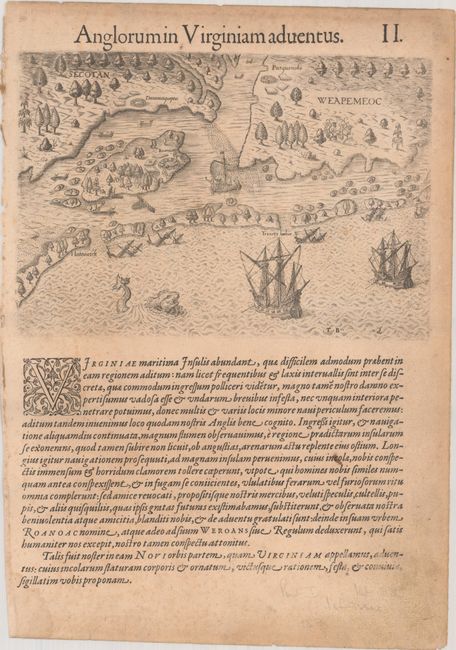 Anglorum in Virginiam aduentus. II.
SECOTAN
Dasamonquepeuc
Pasquenoke
WEAPEMEOC
Trinety harbor
Hatorasck
T. B.
2
VIRGINIAE maritima Insulis abundant, quæ difficilem admodum præbent in
eam regionem aditum: nam licet frequentibus & laxis interuallis sint inter se dis-
creta, quæ commodum ingressum polliceri videtur, magno tamē nostro damno ex-
perti sumus vadosa esse & undarum breuibus infesta, nec unquam interiora pe-
netrare potuimus, donec multis & variis locis minore naui periculum faceremus:
aditum tandem inuenimus loco quodam nostris Anglis bene cognito. Ingressi igitur, & nauiga-
tione aliquandiu continuata, magnum flumen obseruauimus, è regione prædictarum insularum
se exonerans, quod tamen subire non licuit, ob angustias, arenarum actu replente eius ostium. Lon-
gius igitur nauigationem prosequuti, ad magnam insulam peruenimus, cuius incolæ, nobis conspe-
ctis immensum & horridum clamorem tollere cæperunt, utpote qui homines nobis similes num-
quam antea conspexissent, & in fugam se coniicientes, vlulatibus ferarum vel furiosorum ritu
omnia complerunt: sed amice reuocati, propositisque nostris mercibus, veluti speculis, cultellis, pu-
pis, & aliis quisquiliis, quas ipsis gratas futuras existimabamus, substiterunt, & obseruata nostra
beniuolentia atque amicitia, blanditi nobis, & de aduentu gratulati sunt: deinde in suam vrbem
ROANOAC nomine, atque adeo ad suum WEROANS siue Regulum deduxerunt, qui satis
humaniter nos excepit, nostro tamen conspectu attonitus.
Talis fuit noster in eam NOVI orbis partem, quam VIRGINIAM appellamus, aduen-
tus: cuius incolarum staturam corporis & ornatum, victusque rationem, festa, & conuiuia,
sigillatim vobis proponam.